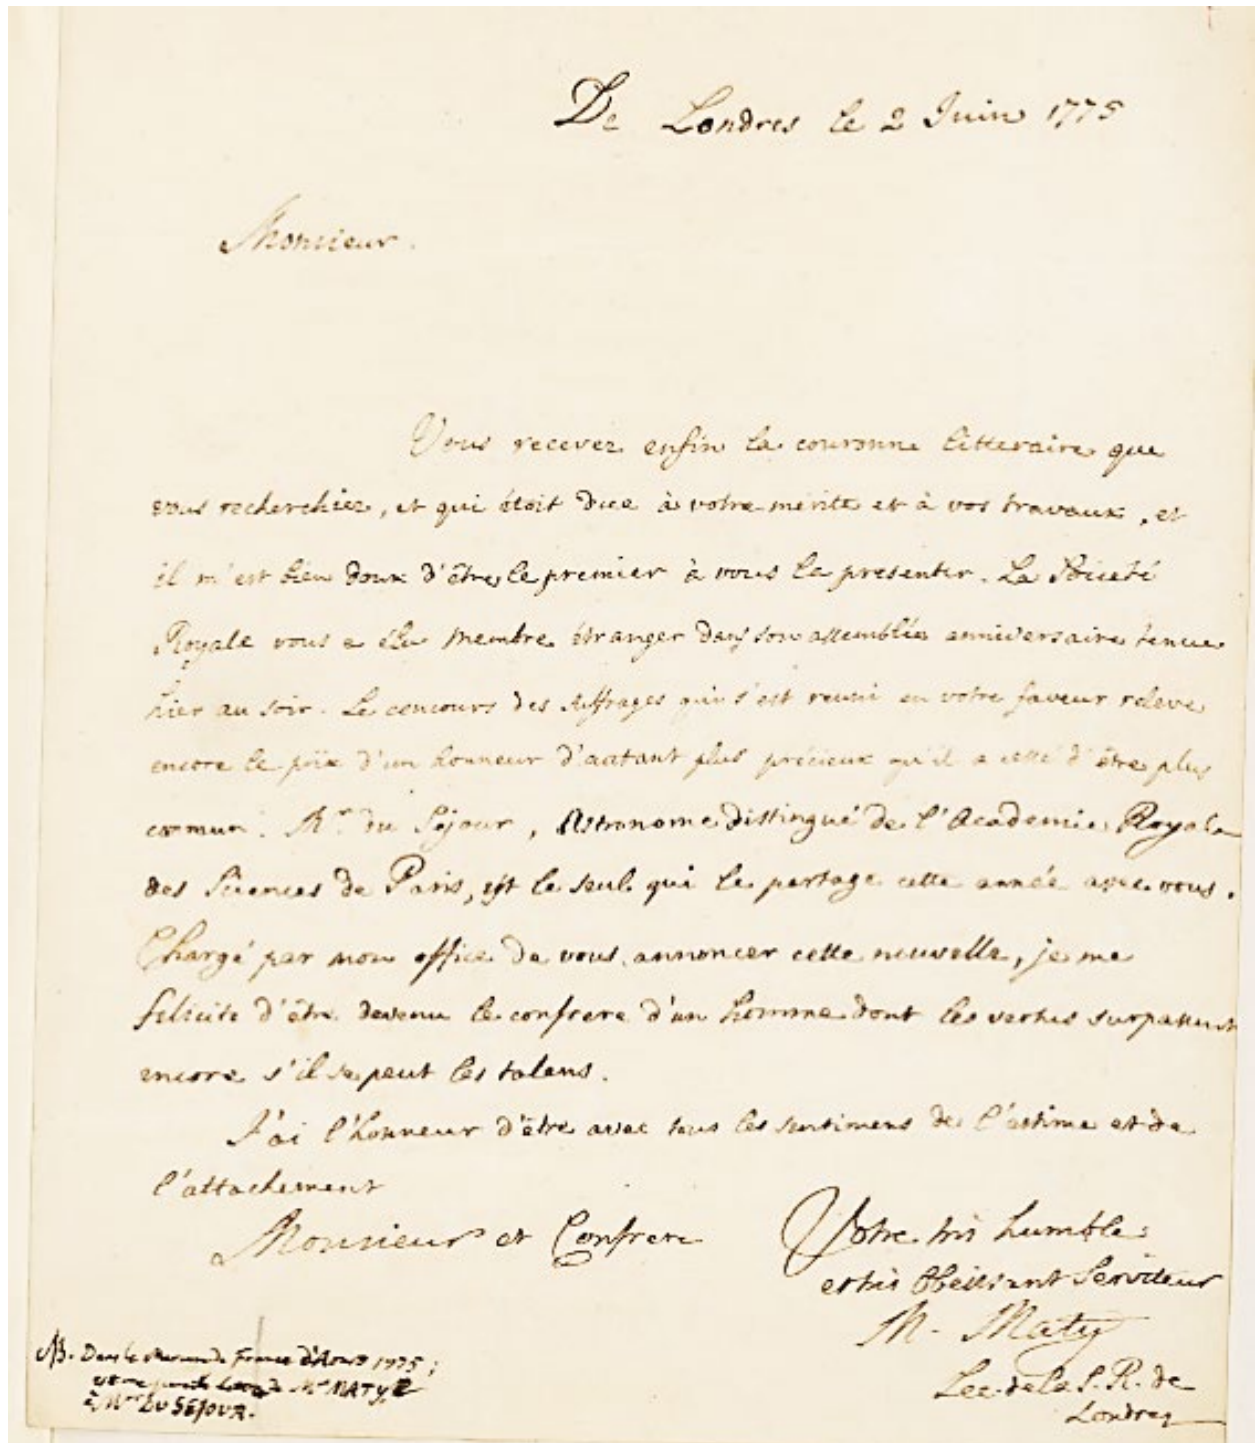 De Londres le 2 Juin 1775
Monsieur.
Vous recevez enfin la couronne litteraire que
vous recherchiez, et qui étoit due à votre merite et à vos travaux, et
il m'est bien doux d'être le premier à vous la presenter. La Societé
Royale vous a élu membre étranger dans son assemblée anniversaire tenue
hier au soir. Le concours des suffrages qui s'est reuni en votre faveur releve
encore le prix d'un honneur d'autant plus précieux qu'il a cessé d'être plus
commun. Mr. du Séjour, Astronome distingué de l'Academie Royale
des Sciences de Paris, est le seul qui le partage cette année avec vous.
Chargé par mon office de vous annoncer cette nouvelle, je me
felicite d'être devenu le confrere d'un homme dont les vertus surpassent
encore s'il se peut les talens.
J'ai l'honneur d'être avec tous les sentimens de l'estime et de
l'attachement
Monsieur et Confrere
Votre très humble
et très Obeissant Serviteur
M. Maty
Sec. de la S. R. de
Londres
NB. Dans le Mercure de France d'Aout 1775;
Mr MATY
à Mr DU SÉJOUR.